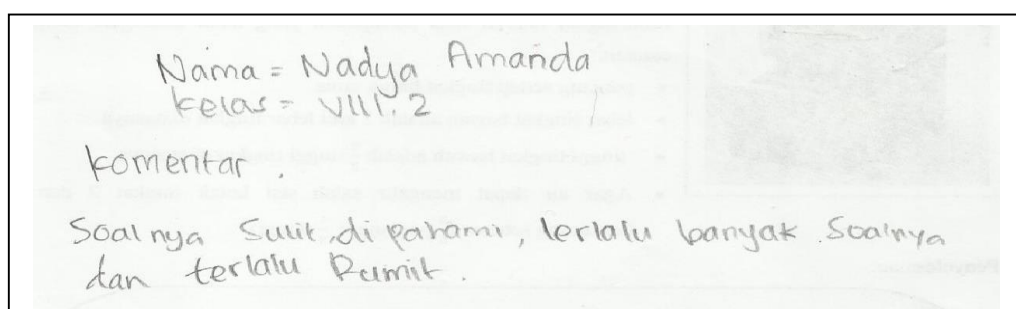 Nama = Nadya Amanda
kelas = VIII.2
komentar.
Soalnya Sulit di pahami, terlalu banyak Soalnya
dan terlalu Rumit.